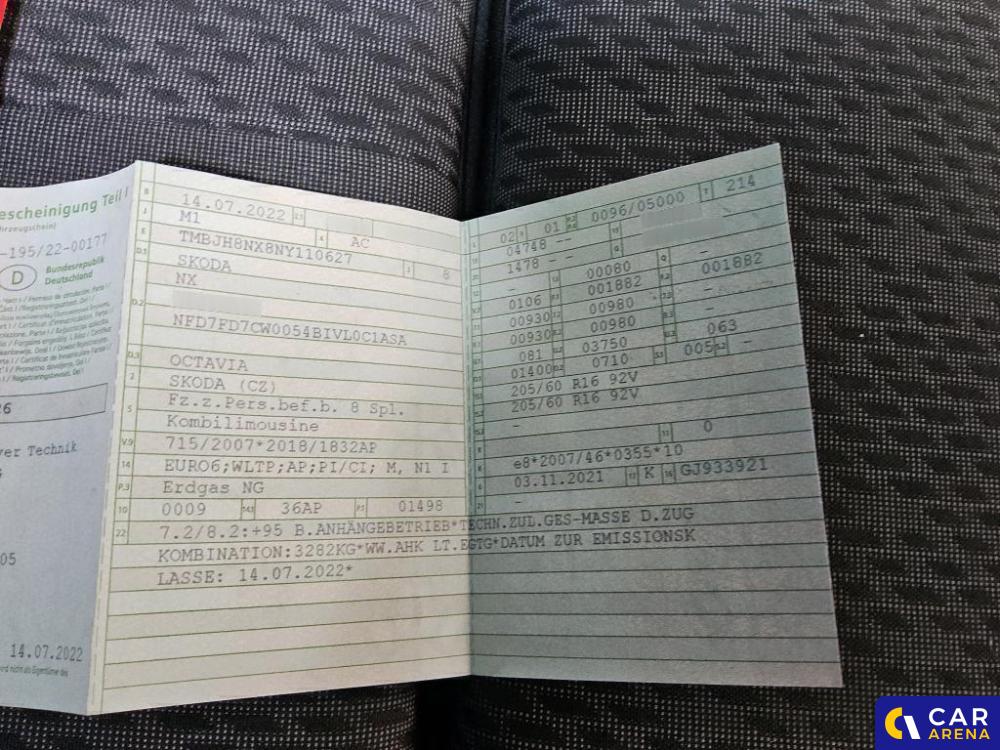 escheinigung Teil I
hrzeugschein)
-195/22-00177
D
Bundesrepublik
Deutschland
26
ver Technik
05
14.07.2022
B 14.07.2022 2.1 AC
J M1 4
E TMBJH8NX8NY110627 3 8
D.1 SKODA
NX
D.2
NFD7FD7CW0054BIVL0C1ASA
D.3 OCTAVIA
2 SKODA (CZ)
5 Fz.z.Pers.bef.b. 8 Spl.
Kombilimousine
V.9 715/2007*2018/1832AP
14 EURO6;WLTP;AP;PI/CI; M, N1 I
P.3 Erdgas NG
10 0009 14.1 36AP P.1 01498
22 7.2/8.2:+95 B.ANHÄNGEBETRIEB*TECHN.ZUL.GES-MASSE D.ZUG
KOMBINATION:3282KG*WW.AHK LT.EGTG*DATUM ZUR EMISSIONSK
LASSE: 14.07.2022*
L 02 9 01 P.2 P.4 0096/05000 T 214
18 04748 -- 19
20 1478 -- - G
12 - 13 00080 Q -
0106 001882 001882
00930 00980 -
00930 00980 -
081 03750 063
01400 0710 005 -
205/60 R16 92V
205/60 R16 92V
-
- 11 0
K e8*2007/46*0355*10
6 03.11.2021 17 K 16 GJ933921
21 -
CAR
ARENA